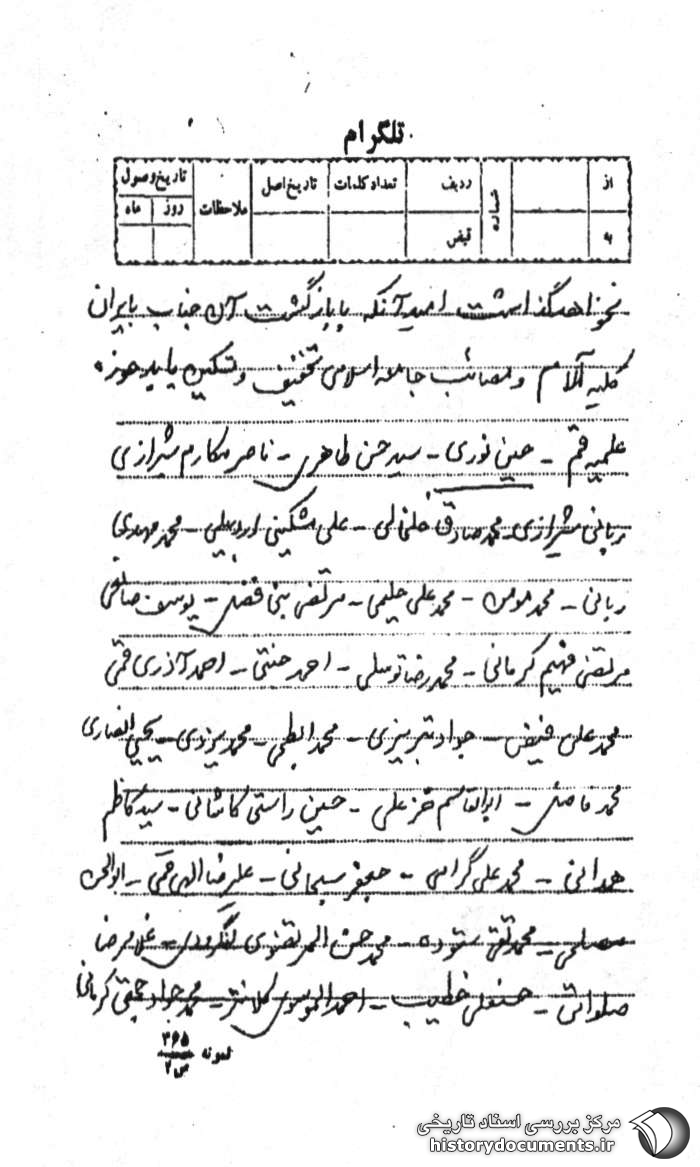 تلگرام
از ردیف تعداد کلمات تاریخ اصل ملاحظات تاریخ وصول
شماره روز ماه
به قبض
نخواهد گذاشت امید آنکه با بازگشت آن جناب بایران
کلیه آلام و مصائب جامعه اسلامی تخفیف و تسکین یابد حوزه
علمیه قم - حسین نوری - سید حسن طاهری - ناصر مکارم شیرازی
ربانی شیرازی - محمد صادق خلخالی - علی مشکینی اردبیلی - محمد مهدی
ربانی - محمد مومن - محمد علی حلیمی - مرتضی بنی فضل - یوسف صانعی
مرتضی فهیم کرمانی - محمد رضا توسلی - احمد جنتی - احمد آذری قمی
محمد علی فیض - جواد تبریزی - محمد ابطحی - محمد یزدی - یحیی انصاری
محمد فاضل - ابوالقاسم خزعلی - حسین راستی کاشانی - سید کاظم
همدانی - محمد علی گرامی - جعفر سبحانی - علیرضا الهی قمی - ابوالحسن
مصلحی - محمد تقی ستوده - محمد حسن المرتضوی لنگرودی - غلامرضا
صلواتی - حسنعلی خطیب - احمد الموسوی کلانتر - محمد جواد حجتی کرمانی
نمونه ۳۶۵
ص ۲
مرکز بررسی اسناد تاریخی
historydocuments.ir